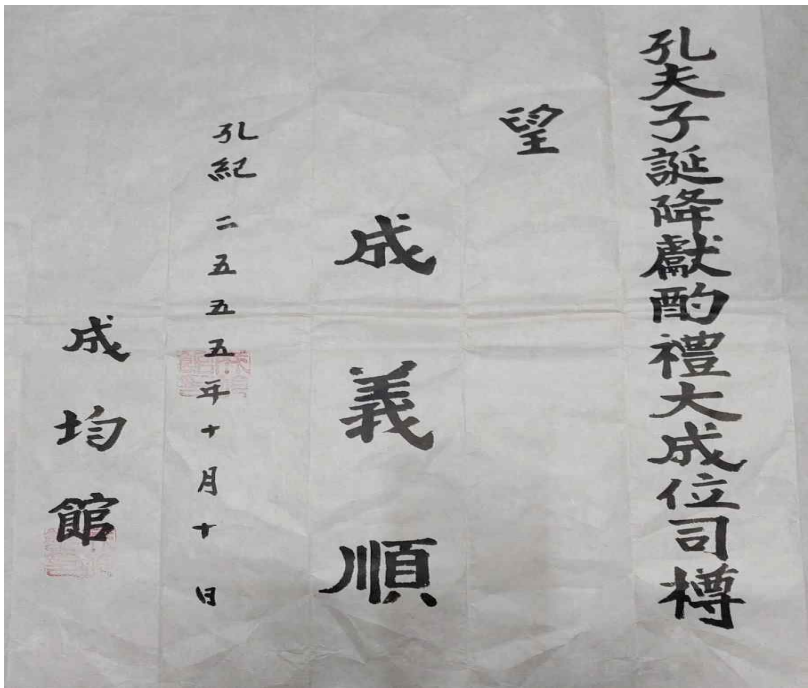 孔夫子誕降獻酌禮大成位司樽
望
成義順
孔紀 二五五五年十月十日
成均館